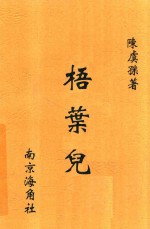 陳虞孫著
梧葉兒
南京海角社